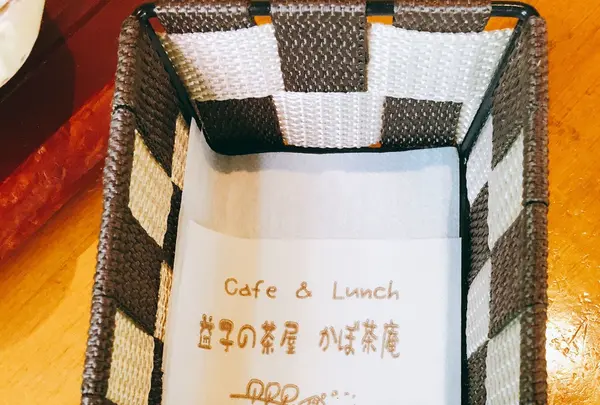 Cafe & Lunch
益子の茶屋 かぼ茶庵